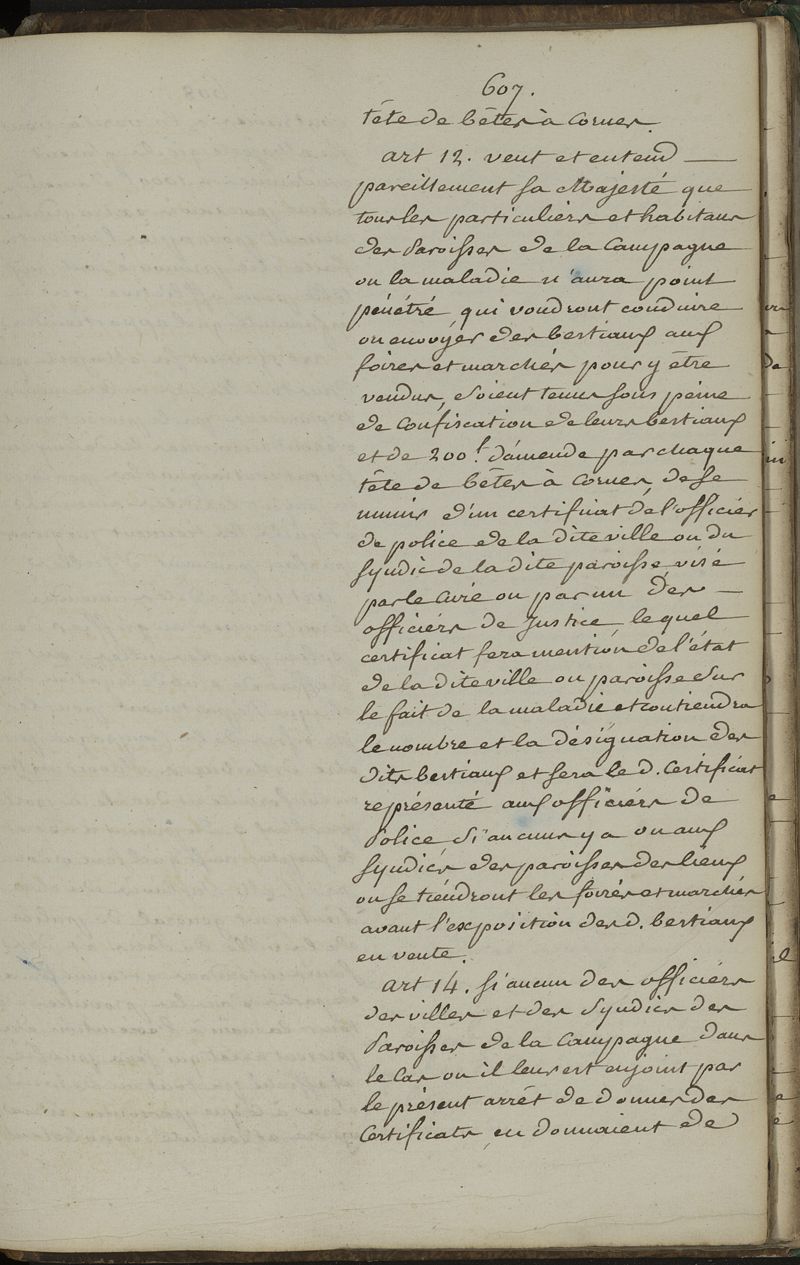 607.
tête de bêtes à Cornes.
art 12. veut et entend —
pareillement sa Majesté que
tous les particuliers et habitans
des Paroisses de la Campagne
ou la maladie n'aura point
pénétré qui voudront conduire
ou envoyer des bestiaux aux
foires et marchés pour y être
vendus, soient tenus sous peine
de Confiscation de leurs bestiaux
et de 200 l. d'amende par chaque
tête de bêtes à Cornes, de se
munir d'un certificat de l'officier
de police de la dite ville ou du
Syndic de la dite paroisse visé
par le Curé ou par un des —
officiers de Justice, lequel
certificat fera mention de l'état
de la dite ville ou paroisse sur
le fait de la maladie et contiendra
le nombre et la désignation des
dits bestiaux et sera le d. Certificat
représenté aux officiers de
Police si aucuns y a ou aux
Syndics des paroisses des lieux
ou se tiendront les foires et marchés
avant l'exposition des d. bestiaux
en vente.
art 14. si aucun des officiers
des villes et des Syndics des
Paroisses de la Campagne dans
le Cas ou il leur est enjoint par
le présent arrêt de donner des
Certificats, en donnaient de